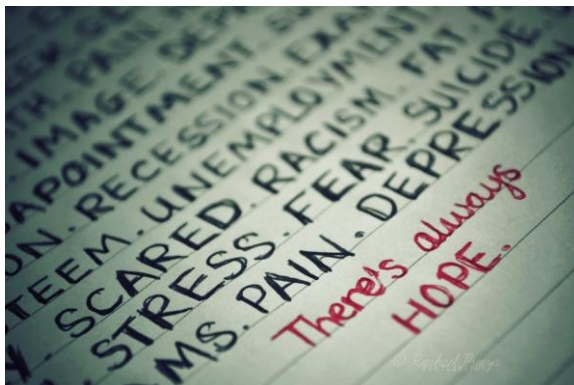 PAIN
IMAGE. DEP
APOINTMENT. SU
ON. RECESSION. EXAM
TEEM. UNEMPLOYMENT
SCARED. RACISM. FAT.
STRESS. FEAR. SUICIDE.
MS. PAIN. DEPRESSION
There's always
HOPE.